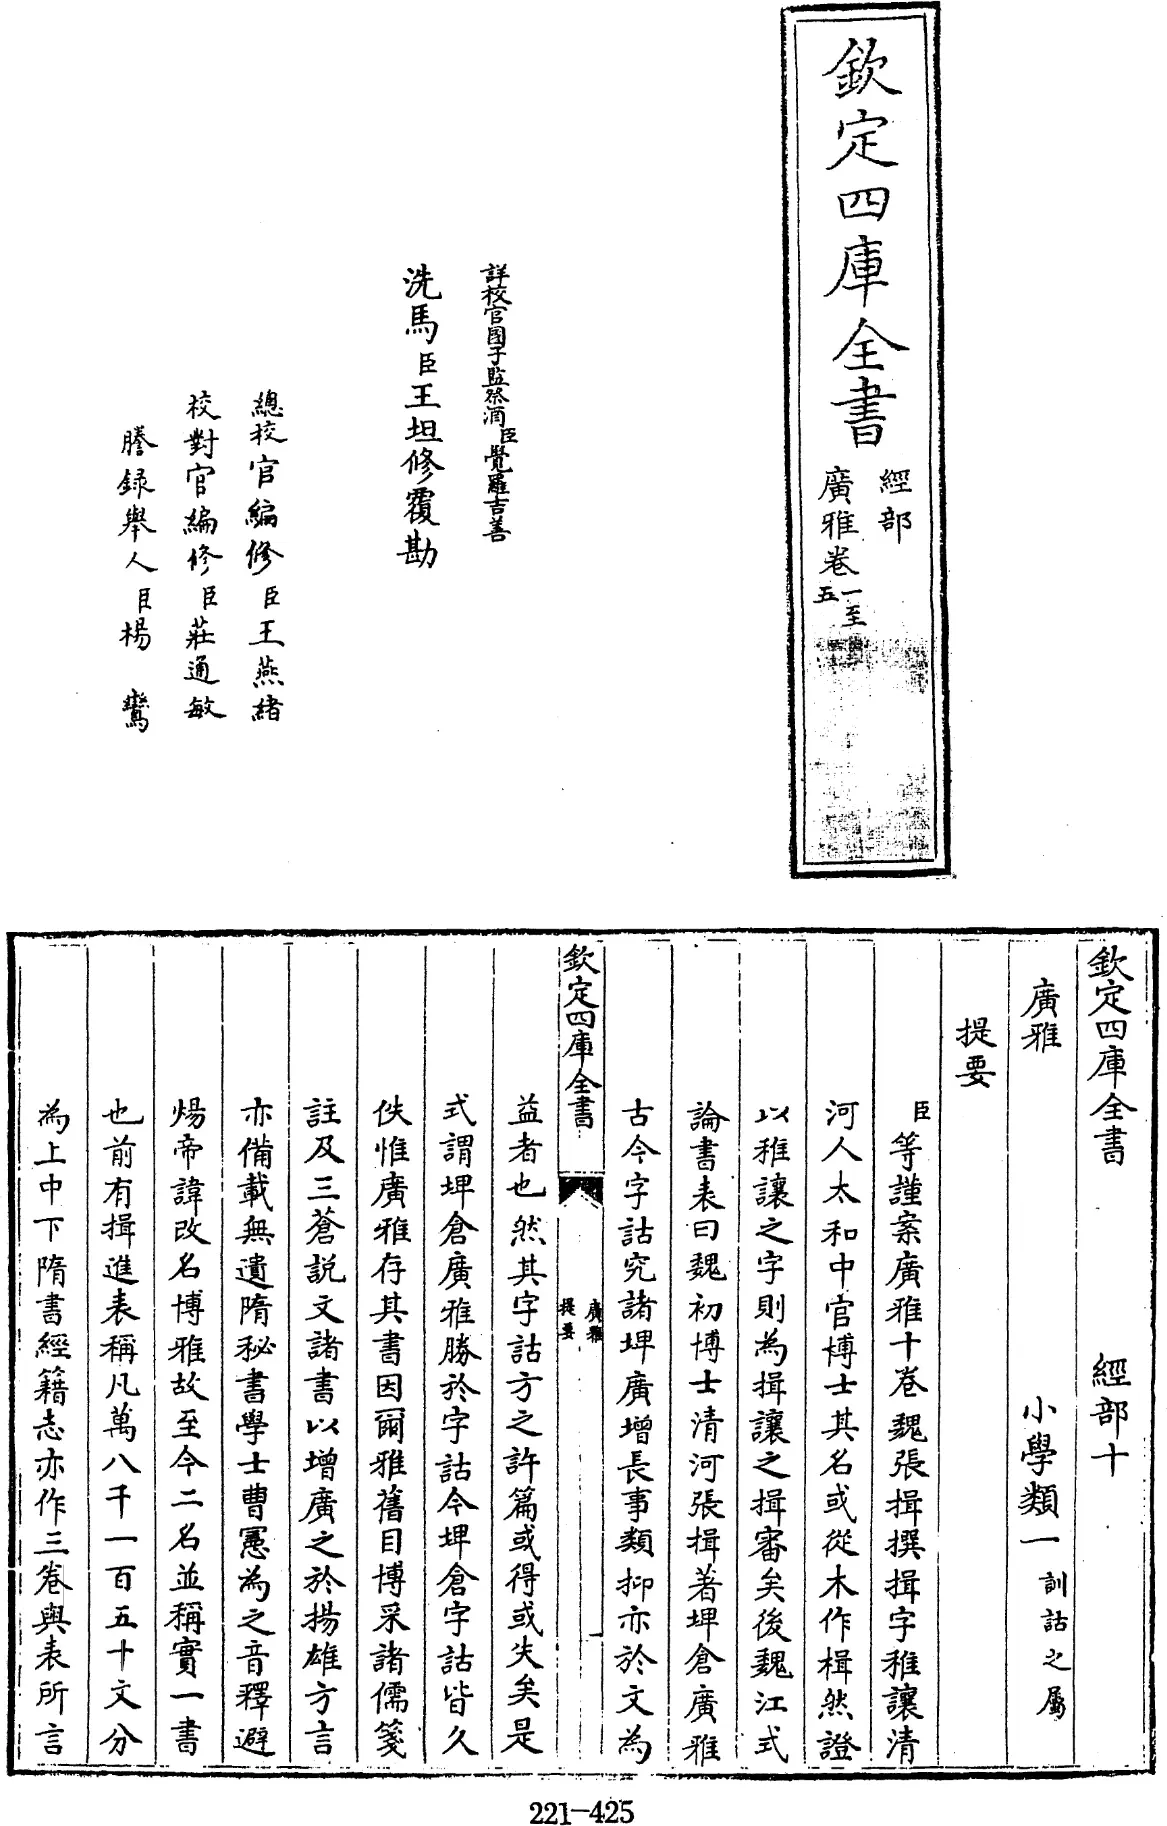 欽定四庫全書
經部
廣雅卷一至五
詳校官國子監祭酒臣覺羅吉善
洗馬臣王坦修覆勘
總校官編修臣王燕緒
校對官編修臣莊通敏
謄録舉人臣楊鸞
欽定四庫全書 經部十
廣雅 小學類一訓詁之屬
提要
臣等謹案廣雅十卷魏張揖撰揖字稚讓清
河人太和中官博士其名或從木作楫然證
以稚讓之字則為揖讓之揖審矣後魏江式
論書表曰魏初博士清河張揖著埤倉廣雅
古今字詁究諸埤廣增長事類抑亦於文為
欽定四庫全書
廣雅
提要
一
益者也然其字詁方之許篇或得或失矣是
式謂埤倉廣雅勝於字詁今埤倉字詁皆久
佚惟廣雅存其書因爾雅舊目博采諸儒箋
註及三蒼説文諸書以增廣之於揚雄方言
亦備載無遺隋秘書學士曹憲為之音釋避
煬帝諱改名博雅故至今二名並稱實一書
也前有揖進表稱凡萬八千一百五十文分
為上中下隋書經籍志亦作三卷與表所言
221-425